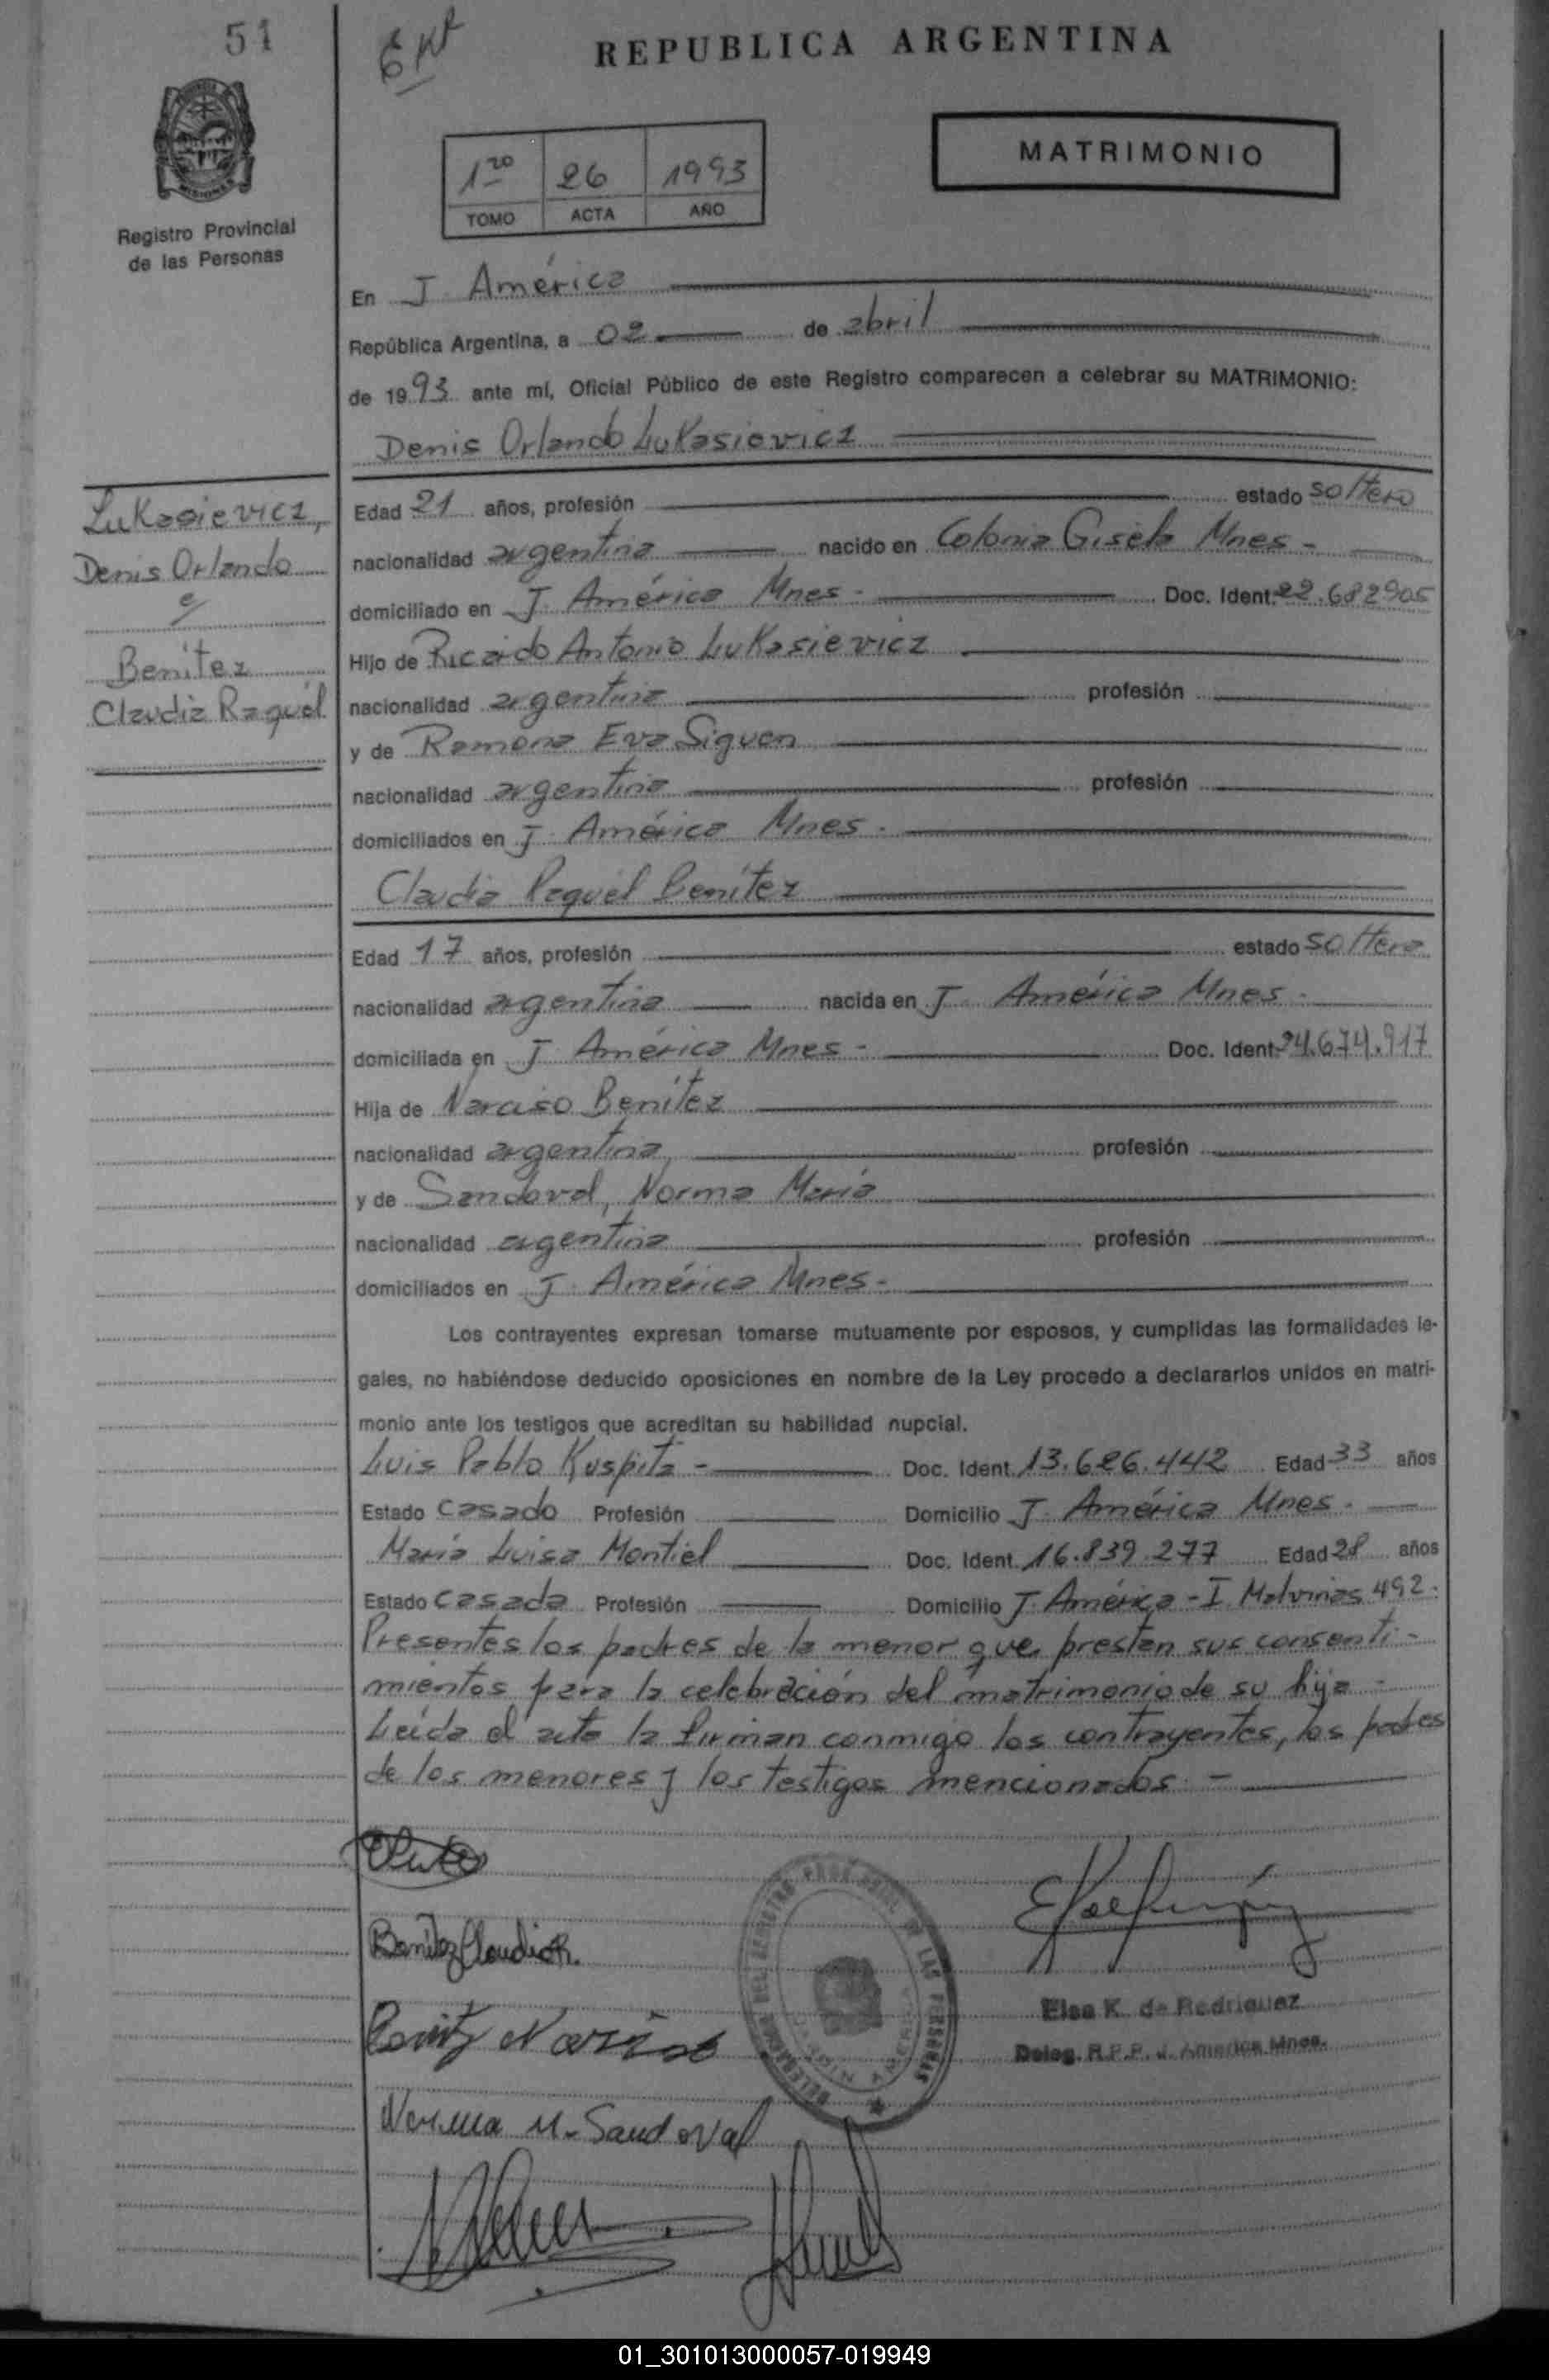 51
REPUBLICA ARGENTINA
MISIONES
Registro Provincial
de las Personas
1ro 26 1993
TOMO ACTA AÑO
MATRIMONIO
En J. América
República Argentina, a 02 de abril
de 1993 ante mí, Oficial Público de este Registro comparecen a celebrar su MATRIMONIO:
Denis Orlando Lukasievicz
Lukasievicz,
Denis Orlando
c/
Benítez
Claudia Raquél
Edad 21 años, profesión estado soltero
nacionalidad argentina nacido en Colonia Gisela Mnes -
domiciliado en J. América Mnes - Doc. Ident. 22.682905
Hijo de Ricardo Antonio Lukasievicz
nacionalidad argentina profesión
y de Ramona Eva Siguen
nacionalidad argentina profesión
domiciliados en J. América Mnes -
Claudia Raquél Benítez
Edad 17 años, profesión estado soltera
nacionalidad argentina nacida en J. América Mnes -
domiciliada en J. América Mnes - Doc. Ident. 24.674.917
Hija de Narciso Benítez
nacionalidad argentina profesión
y de Sandoval, Norma María
nacionalidad argentina profesión
domiciliados en J. América Mnes -
Los contrayentes expresan tomarse mutuamente por esposos, y cumplidas las formalidades le-
gales, no habiéndose deducido oposiciones en nombre de la Ley procedo a declararlos unidos en matri-
monio ante los testigos que acreditan su habilidad nupcial.
Luis Pablo Kuspita - Doc. Ident. 13.626.442 Edad 33 años
Estado casado Profesión Domicilio J. América Mnes -
María Luisa Montiel Doc. Ident. 16.839.277 Edad 28 años
Estado casada Profesión Domicilio J. América - I. Malvinas 492.
Presentes los padres de la menor que prestan sus consenti-
mientos para la celebración del matrimonio de su hija -
Leída el acta la firman conmigo los contrayentes, los padres
de los menores y los testigos mencionados. -
Benítez Claudia R.
Benitez Narciso
Elsa K. de Rodriguez
Deleg. R.P.P. J. America Mnes.
Norma M. Sandoval
01_301013000057-019949